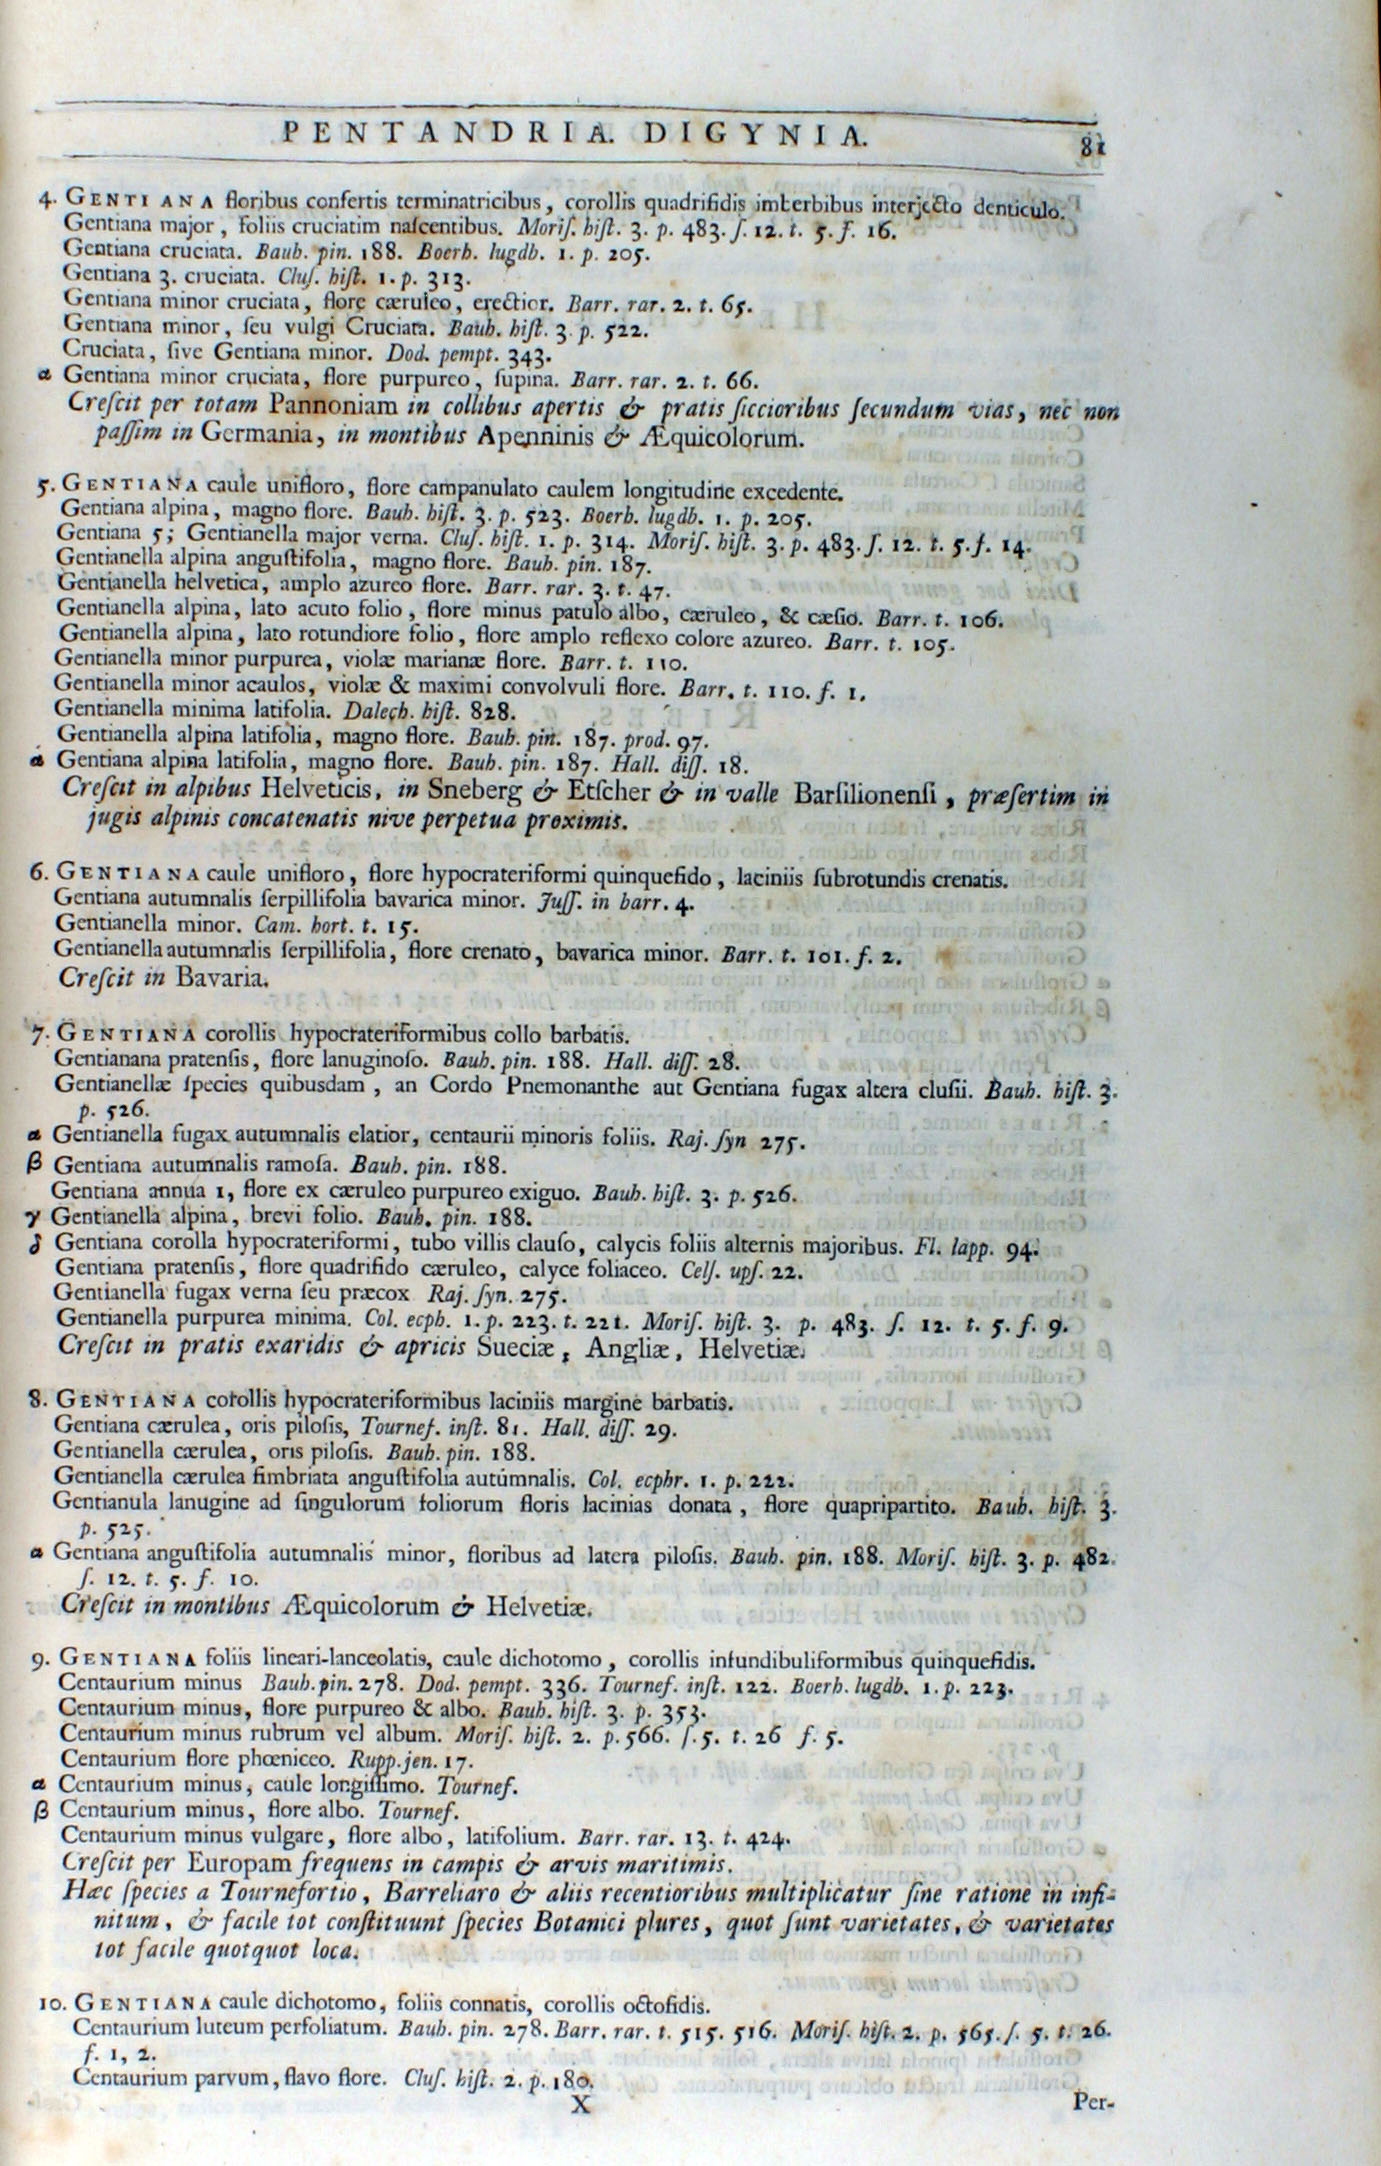 PENTANDRIA. DIGYNIA. 81
4. GENTIANA floribus confertis terminatricibus, corollis quadrifidis imberbibus interjecto denticulo.
Gentiana major, foliis cruciatim naſcentibus. Moriſ. hiſt. 3. p. 483. ſ. 12. t. 5. f. 16.
Gentiana cruciata. Bauh. pin. 188. Boerh. lugdb. 1. p. 205.
Gentiana 3. cruciata. Cluſ. hiſt. 1. p. 313.
Gentiana minor cruciata, flore cæruleo, erectior. Barr. rar. 2. t. 65.
Gentiana minor, ſeu vulgi Cruciata. Bauh. hiſt. 3. p. 522.
Cruciata, ſive Gentiana minor. Dod. pempt. 343.
α Gentiana minor cruciata, flore purpureo, ſupina. Barr. rar. 2. t. 66.
Creſcit per totam Pannoniam in collibus apertis & pratis ſiccioribus ſecundum vias, nec non
paſſim in Germania, in montibus Apenninis & Æquicolorum.
5. GENTIANA caule unifloro, flore campanulato caulem longitudine excedente.
Gentiana alpina, magno flore. Bauh. hiſt. 3. p. 523. Boerh. lugdb. 1. p. 205.
Gentiana 5; Gentianella major verna. Cluſ. hiſt. 1. p. 314. Moriſ. hiſt. 3. p. 483. ſ. 12. t. 5. f. 14.
Gentianella alpina anguſtifolia, magno flore. Bauh. pin. 187.
Gentianella helvetica, amplo azureo flore. Barr. rar. 3. t. 47.
Gentianella alpina, lato acuto folio, flore minus patulo albo, cæruleo, & cæſio. Barr. t. 106.
Gentianella alpina, lato rotundiore folio, flore amplo reflexo colore azureo. Barr. t. 105.
Gentianella minor purpurea, violæ marianæ flore. Barr. t. 110.
Gentianella minor acaulos, violæ & maximi convolvuli flore. Barr. t. 110. f. 1.
Gentianella minima latifolia. Dalech. hiſt. 828.
Gentianella alpina latifolia, magno flore. Bauh. pin. 187. prod. 97.
α Gentiana alpina latifolia, magno flore. Bauh. pin. 187. Hall. diſſ. 18.
Creſcit in alpibus Helveticis, in Sneberg & Etſcher & in valle Barſilionenſi, præſertim in
jugis alpinis concatenatis nive perpetua proximis.
6. GENTIANA caule unifloro, flore hypocrateriformi quinquefido, laciniis ſubrotundis crenatis.
Gentiana autumnalis ſerpillifolia bavarica minor. Juſſ. in barr. 4.
Gentianella minor. Cam. hort. t. 15.
Gentianella autumnalis ſerpillifolia, flore crenato, bavarica minor. Barr. t. 101. f. 2.
Creſcit in Bavaria.
7. GENTIANA corollis hypocrateriformibus collo barbatis.
Gentianana pratenſis, flore lanuginoſo. Bauh. pin. 188. Hall. diſſ. 28.
Gentianellæ ſpecies quibusdam, an Cordo Pnemonanthe aut Gentiana fugax altera cluſii. Bauh. hiſt. 3.
p. 526.
α Gentianella fugax autumnalis elatior, centaurii minoris foliis. Raj. ſyn 275.
β Gentiana autumnalis ramoſa. Bauh. pin. 188.
Gentiana annua 1, flore ex cæruleo purpureo exiguo. Bauh. hiſt. 3. p. 526.
γ Gentianella alpina, brevi folio. Bauh. pin. 188.
δ Gentiana corolla hypocrateriformi, tubo villis clauſo, calycis foliis alternis majoribus. Fl. lapp. 94.
Gentiana pratenſis, flore quadrifido cæruleo, calyce foliaceo. Celſ. upſ. 22.
Gentianella fugax verna ſeu præcox Raj. ſyn. 275.
Gentianella purpurea minima. Col. ecph. 1. p. 223. t. 221. Moriſ. hiſt. 3. p. 483. ſ. 12. t. 5. f. 9.
Creſcit in pratis exaridis & apricis Sueciæ, Angliæ, Helvetiæ.
8. GENTIANA corollis hypocrateriformibus laciniis margine barbatis.
Gentiana cærulea, oris piloſis, Tournef. inſt. 81. Hall. diſſ. 29.
Gentianella cærulea, oris piloſis. Bauh. pin. 188.
Gentianella cærulea fimbriata anguſtifolia autumnalis. Col. ecphr. 1. p. 222.
Gentianula lanugine ad ſingulorum foliorum floris lacinias donata, flore quapripartito. Bauh. hiſt. 3.
p. 525.
α Gentiana anguſtifolia autumnalis minor, floribus ad latera piloſis. Bauh. pin. 188. Moriſ. hiſt. 3. p. 482.
ſ. 12. t. 5. f. 10.
Creſcit in montibus Æquicolorum & Helvetiæ.
9. GENTIANA foliis lineari-lanceolatis, caule dichotomo, corollis infundibuliformibus quinquefidis.
Centaurium minus Bauh. pin. 278. Dod. pempt. 336. Tournef. inſt. 122. Boerh. lugdb. 1. p. 223.
Centaurium minus, flore purpureo & albo. Bauh. hiſt. 3. p. 353.
Centaurium minus rubrum vel album. Moriſ. hiſt. 2. p. 566. ſ. 5. t. 26 f. 5.
Centaurium flore phœniceo. Rupp. jen. 17.
α Centaurium minus, caule longiſſimo. Tournef.
β Centaurium minus, flore albo. Tournef.
Centaurium minus vulgare, flore albo, latifolium. Barr. rar. 13. t. 424.
Creſcit per Europam frequens in campis & arvis maritimis.
Hæc ſpecies a Tournefortio, Barreliaro & aliis recentioribus multiplicatur ſine ratione in infi-
nitum, & facile tot conſtituunt ſpecies Botanici plures, quot ſunt varietates, & varietates
tot facile quotquot loca.
10. GENTIANA caule dichotomo, foliis connatis, corollis octofidis.
Centaurium luteum perfoliatum. Bauh. pin. 278. Barr. rar. t. 515. 516. Moriſ. hiſt. 2. p. 565. ſ. 5. t. 26.
f. 1, 2.
Centaurium parvum, flavo flore. Cluſ. hiſt. 2. p. 180.
X Per-